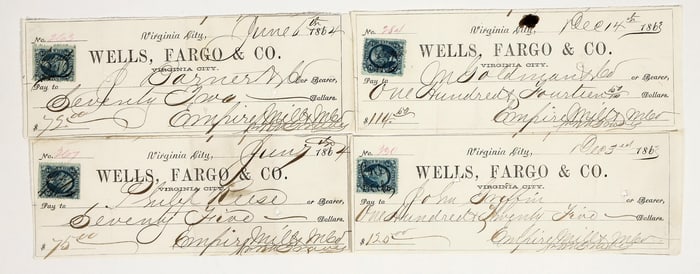 No. 263 Virginia City, June 6th 1864
WELLS, FARGO & CO.
VIRGINIA CITY.
Pay to J. Garner & Co or Bearer,
Seventy Two Dollars.
$ 72.00 Empire Mill & M Co
No. 284 Virginia City, Dec 14th 1863
WELLS, FARGO & CO.
VIRGINIA CITY.
Pay to Goldman & Co or Bearer,
One Hundred & Fourteen 50 Dollars.
$ 114.50 Empire Mill & M Co
No. 267 Virginia City, June 1864
WELLS, FARGO & CO.
VIRGINIA CITY.
Pay to Philip or Bearer,
Seventy Five Dollars.
$ 75.00 Empire Mill & M Co
No. Virginia City, Dec 3rd 186
WELLS, FARGO & CO.
VIRGINIA CITY.
Pay to John or Bearer,
One Hundred & Twenty Five Dollars.
$ 125.00 Empire Mill & M Co